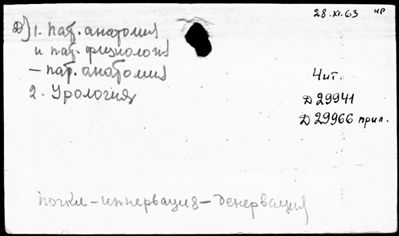 28.XI.63 нр
Д) 1. Пат. анатомия
и пат. физиология
— пат. анатомия
2. Урология
Чит.
Д 29941
Д 29966 прил.
почки – иннервация – денервация